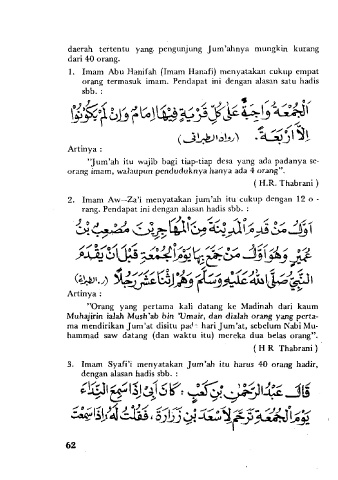 daerah tertentu yang pengunjung Jum'ahnya mungkin kurang
dari 40 orang.
1. Imam Abu Hanifah (Imam Hanafi) menyatakan cukup empat
orang termasuk imam. Pendapat ini dengan alasan satu hadis
sbb. :
اَلْجُمُعَةُ وَاجِبَةٌ عَلَى كُلِّ قَرْيَةٍ فِيْهَا اِمَامٌ وَاِنْ لَمْ يَكُوْنُوْا
اِلَّا اَرْبَعَةً. (رواه الطبرانى)
Artinya :
"Jum'ah itu wajib bagi tiap-tiap desa yang ada padanya se-
orang imam, walaupun penduduknya hanya ada 4 orang".
( H.R. Thabrani )
2. Imam Aw--Za'i menyatakan jum'ah itu cukup dengan 12 o -
rang. Pendapat ini dengan alasan hadis sbb. :
اَوَّلُ مَنْ قَدِمَ الْمَدِيْنَةَ مِنَ الْمُهَاجِرِيْنَ مُصْعَبُ بْنُ
عُمَيْرٍ وَهُوَ اَوَّلُ مَنْ جَمَّعَ بِهَا يَوْمَ الْجُمُعَةِ قَبْلَ اَنْ يَقْدَمَ
النَّبِيُّ صَلَّى اللهُ عَلَيْهِ وَسَلَّمَ وَهُمْ اِثْنَا عَشَرَ رَجُلًا (ر. الطبرانى)
Artinya :
"Orang yang pertama kali datang ke Madinah dari kaum
Muhajirin ialah Mush'ab bin 'Umair, dan dialah orang yang perta-
ma mendirikan Jum'at disitu pada hari Jum'at, sebelum Nabi Mu-
hammad saw datang (dan waktu itu) mereka dua belas orang".
( H R Thabrani )
3. Imam Syafi'i menyatakan Jum'ah itu harus 40 orang hadir,
dengan alasan hadis sbb. :
قَالَ عَبْدُ الرَّحْمٰنِ بْنِ كَعْبٍ : كَانَ اَبِيْ اِذَا سَمِعَ النِّدَاءَ
يَوْمَ الْجُمُعَةِ تَرَحَّمَ لِاَسْعَدَ بْنِ زُرَارَةَ ، فَقُلْتُ لَهُ: اِذَا سَمِعْتَ
62